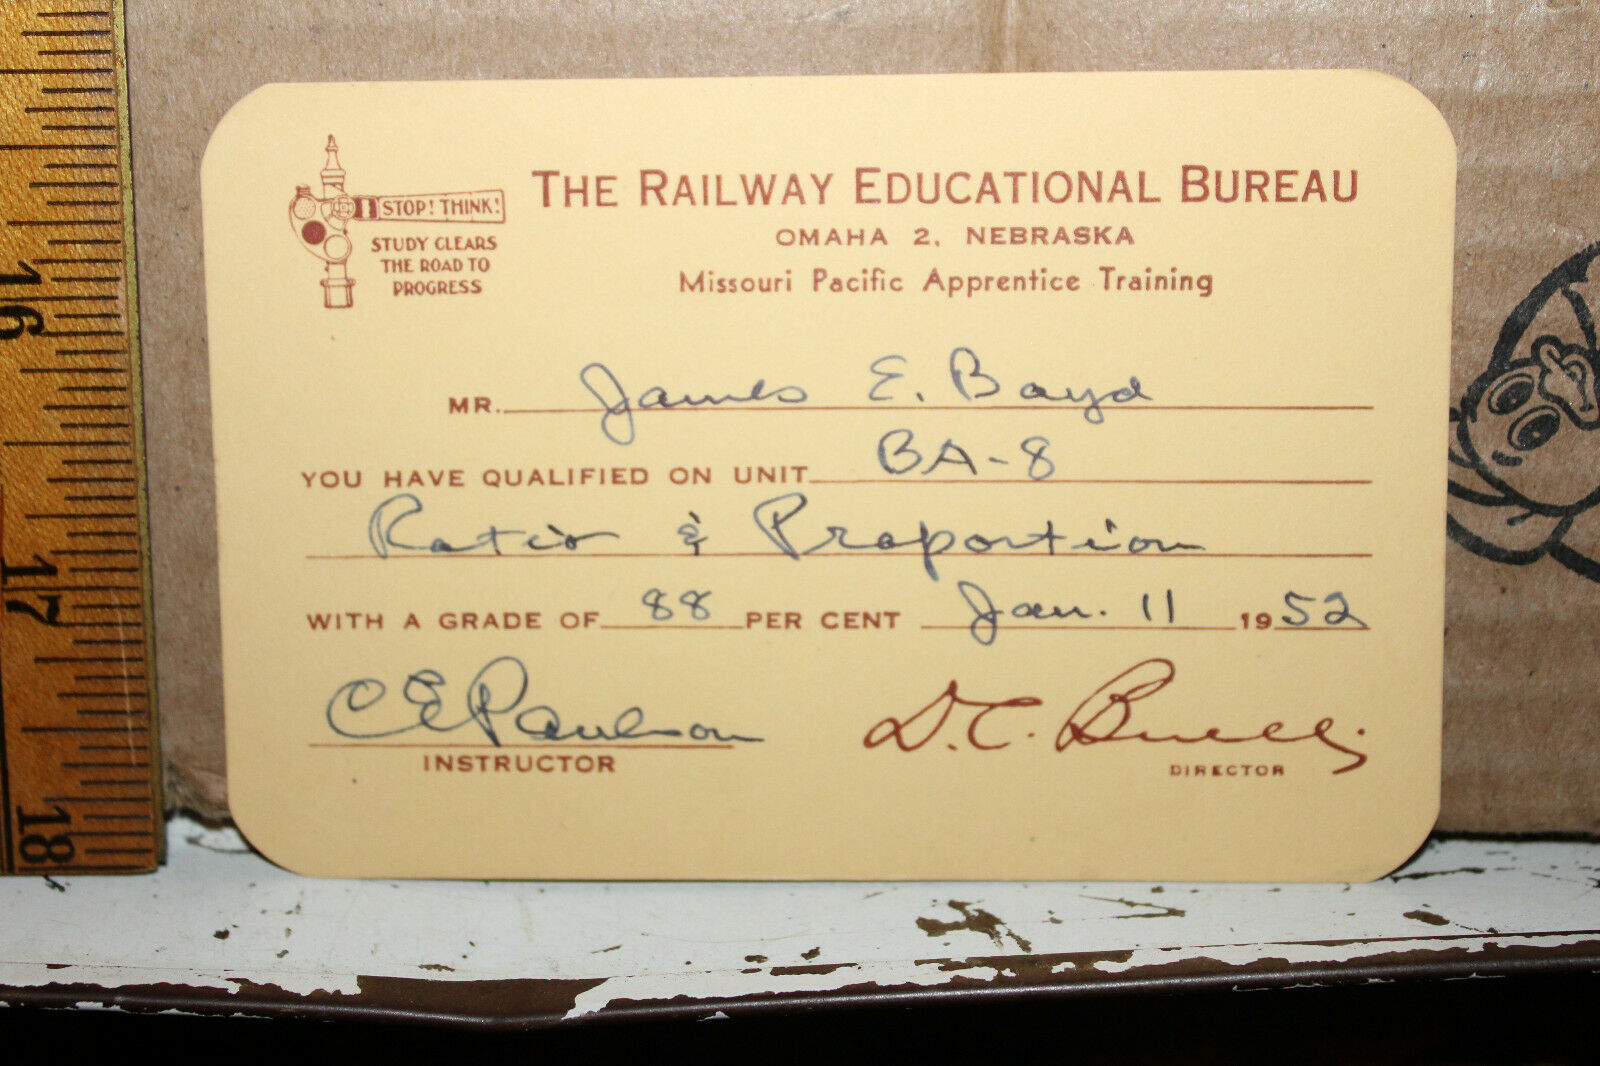 THE RAILWAY EDUCATIONAL BUREAU
OMAHA 2, NEBRASKA
Missouri Pacific Apprentice Training
STOP! THINK!
STUDY CLEARS
THE ROAD TO
PROGRESS
MR. James E. Boyd
YOU HAVE QUALIFIED ON UNIT BA-8
Ratio & Proportion
WITH A GRADE OF 88 PER CENT Jan. 11 1952
C E Paulson
INSTRUCTOR
D. C. Buell.
DIRECTOR
16
17
18